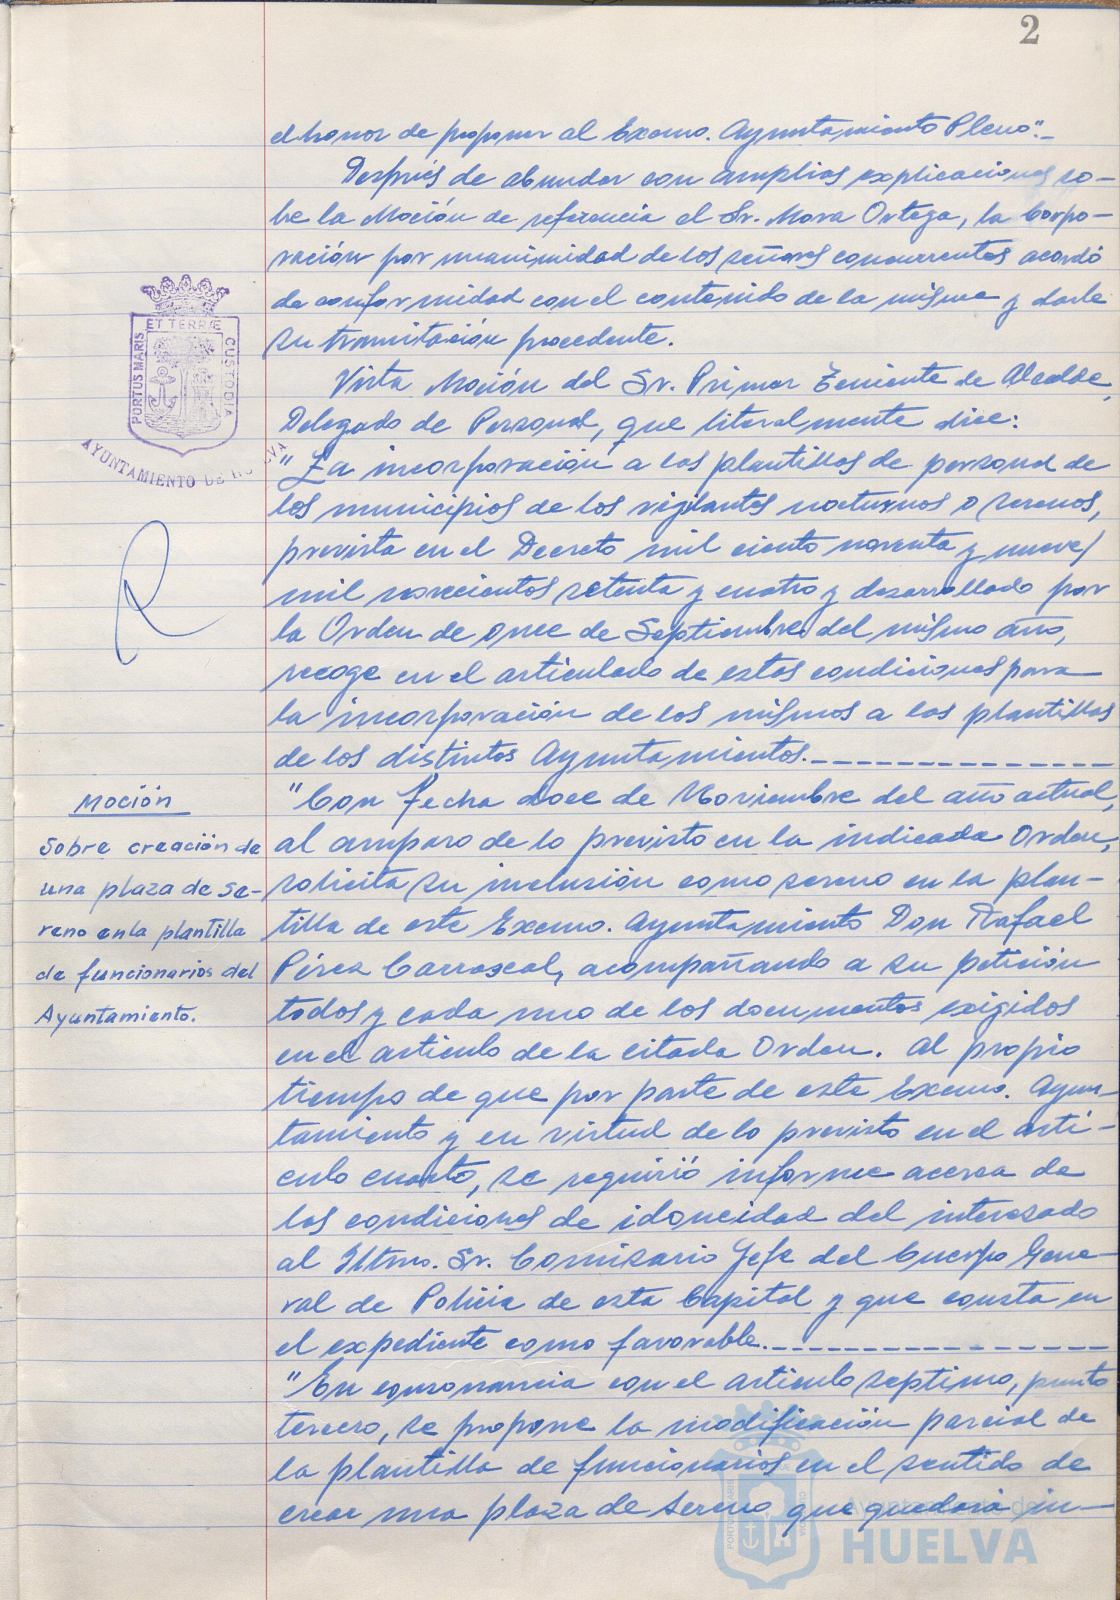 2
el honor de proponer al Excmo. Ayuntamiento Pleno".-
Después de abundar con amplias explicaciones so-
bre la Moción de referencia el Sr. Mora Ortega, la Corpo-
ración por unanimidad de los señores concurrentes acordó
de conformidad con el contenido de la misma y darle
su tramitación procedente.
Vista Moción del Sr. Primer Teniente de Alcalde,
Delegado de Personal, que literalmente dice:
"La incorporación a las plantillas de personal de
los municipios de los vigilantes nocturnos o serenos,
prevista en el Decreto mil ciento noventa y nueve/
mil novecientos setenta y cuatro y desarrollado por
la Orden de once de Septiembre del mismo año,
recoge en el articulado de estas condiciones para
la incorporación de los mismos a las plantillas
de los distintos Ayuntamientos.
"Con fecha doce de Noviembre del año actual,
al amparo de lo previsto en la indicada Orden,
solicita su inclusión como sereno en la plan-
tilla de este Excmo. Ayuntamiento Don Rafael
Pérez Carrascal, acompañando a su petición
todos y cada uno de los documentos exigidos
en el articulo de la citada Orden. Al propio
tiempo de que por parte de este Excmo. Ayun-
tamiento y en virtud de lo previsto en el artí-
culo cuarto, se requirió informe acerca de
las condiciones de idoneidad del interesado
al Iltmo. Sr. Comisario Jefe del Cuerpo Gene-
ral de Policia de esta Capital y que consta en
el expediente como favorable.
"En consonancia con el articulo septimo, punto
tercero, se propone la modificación parcial de
la plantilla de funcionarios en el sentido de
crear una plaza de Sereno que quedará in-
Moción
Sobre creación de
una plaza de Se-
reno en la plantilla
de funcionarios del
Ayuntamiento.
PORTUS MARIS
ET TERRÆ
CUSTODIA
AYUNTAMIENTO DE HUELVA
Ayuntamiento de
HUELVA